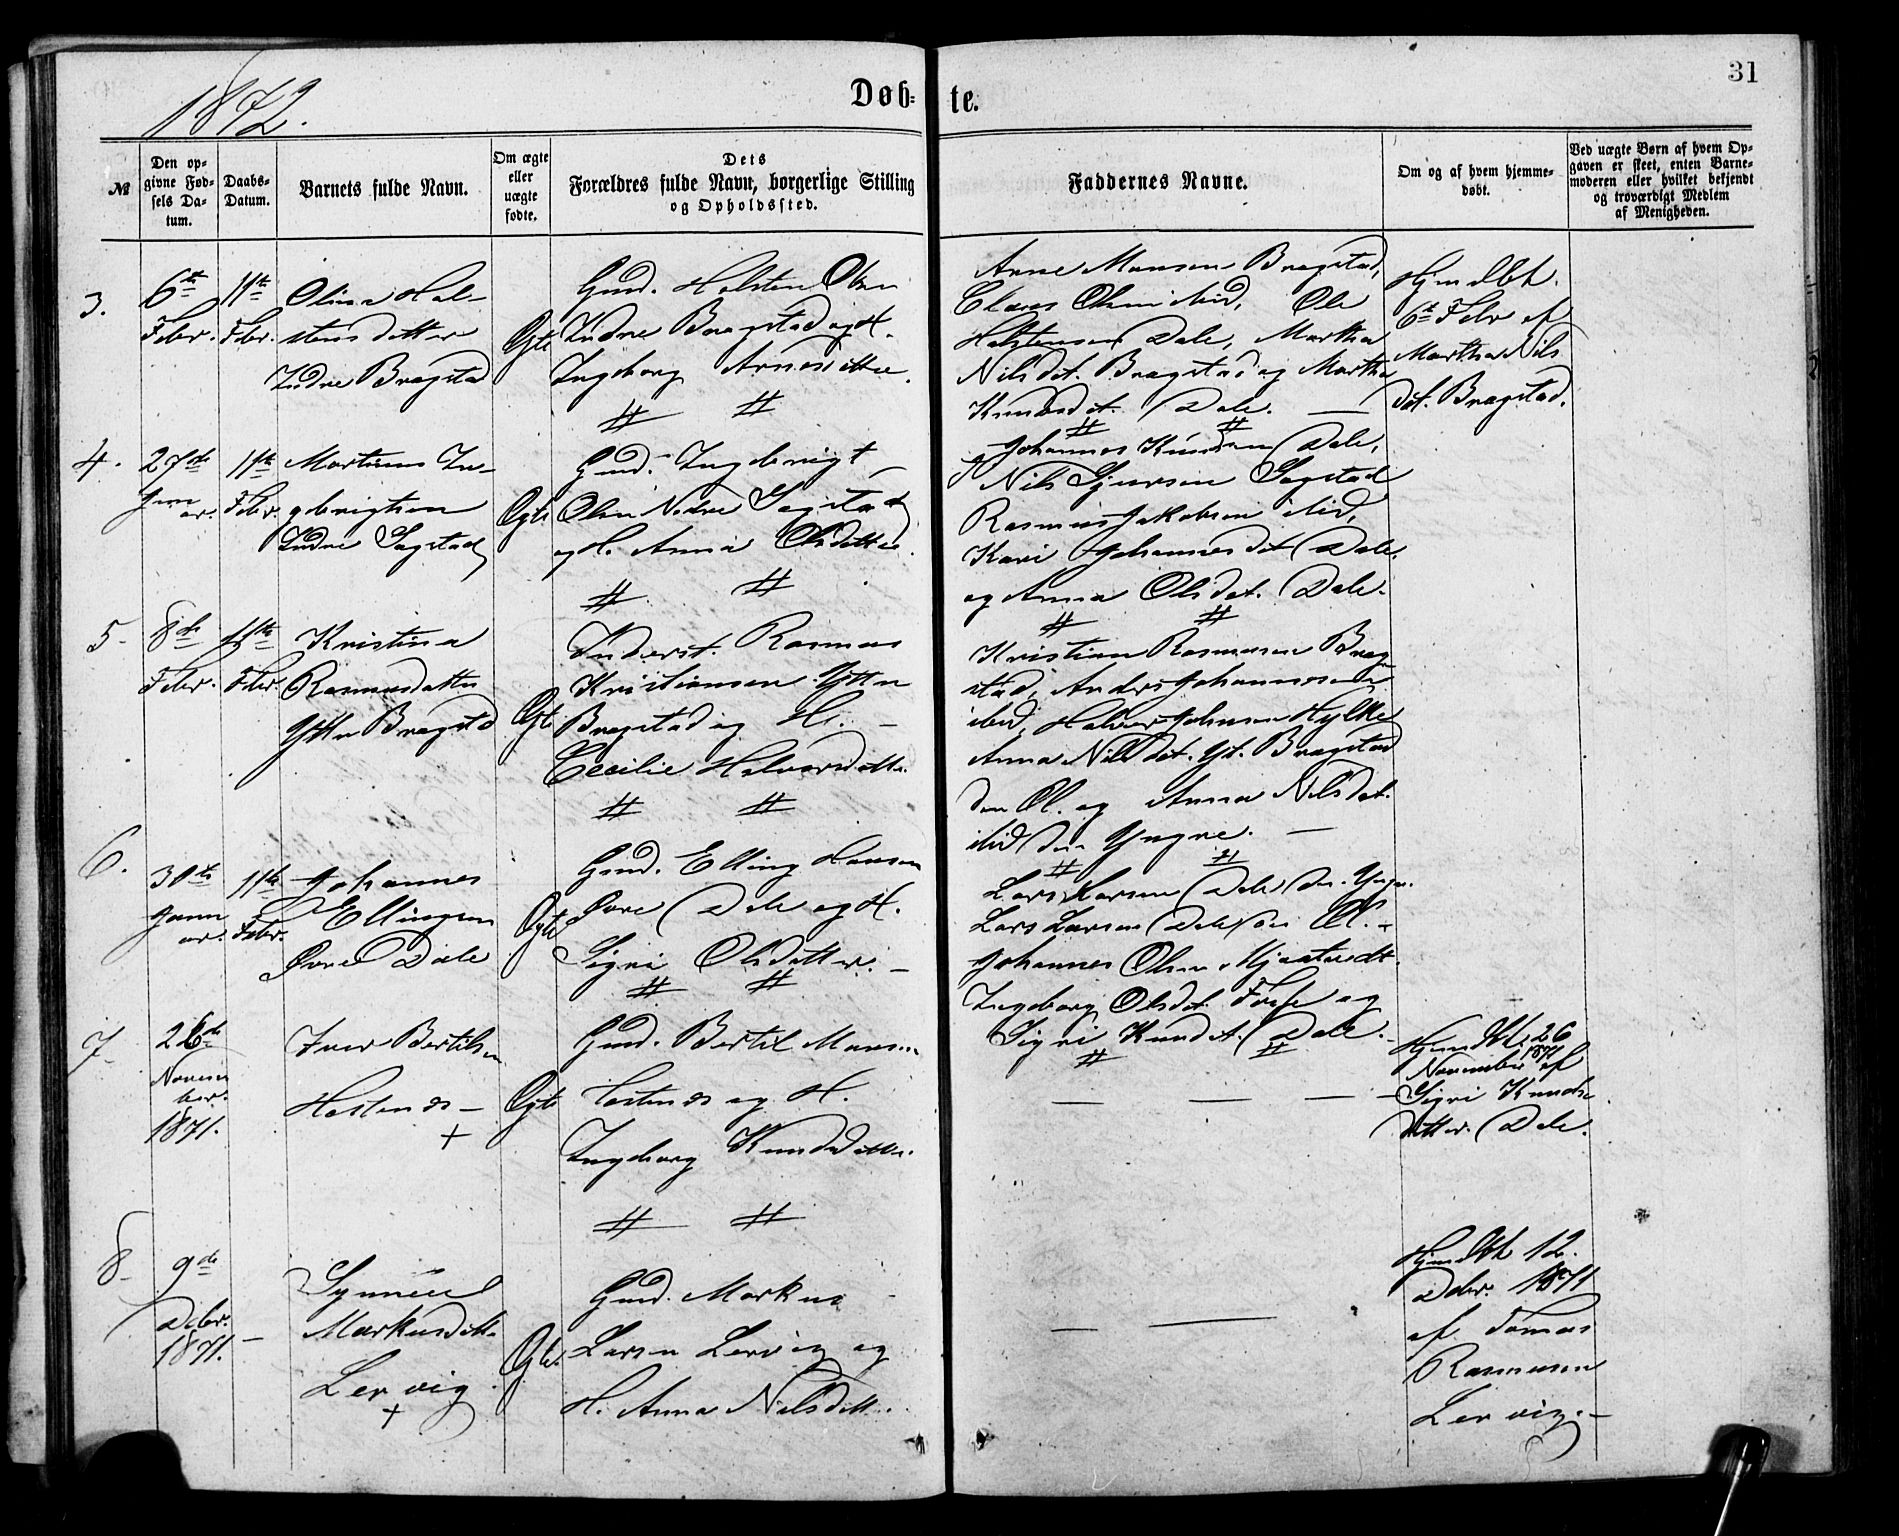 31
1872.
Døb-
te.
№
Den op-
givne Fød-
sels Da-
tum.
Daabs-
Datum.
Barnets fulde Navn.
Om ægte
eller
uægte
fødte.
Dets
Forældres fulde Navn, borgerlige Stilling
og Opholdssted.
Faddernes Navne.
Om og af hvem hjemme-
døbt.
Ved uægte Børn af hvem Op-
gaven er skeet, enten Barne-
moderen eller hvilket bekjendt
og troværdigt Medlem
af Menigheden.
3.
6te
Febr.
11te
Febr.
Olina Hal-
stensdatter
Indre Bragstad
Ægte
Gmd. Halsten Olsen
Indre Bragstad og H.
Ingeborg Arnesdatter.
Arne Monsen Bragstad,
Claus Olsen ibid, Ole
Halstensen Dale, Martha
Nilsdt. Bragstad og Martha
Knudsdt. Dale. —
Hjmdbt.
6te Febr af
Martha Nils
dt. Bragstad.
4.
27de
Janu
ar.
11te
Febr.
Martinus In-
gebrigtsen
Indre Sagstad
Ægte
Gmd. Ingebrigt
Olsen Nedre Sagstad
og H. Anna Olsdatter.
Johannes Knudsen Dale,
Nils Sjursen Sagstad
Rasmus Jakobsen ibid,
Kari Johannesdt Dale.
og Anna Olsdat. Dale.
5.
8de
Febr.
11te
Febr.
Kristina
Rasmusdatter
Yttre Bragstad
Ægte
Inderst. Rasmus
Kristiansen Yttre
Bragstad og H. —
Cecilie Halvorsdatter.
Kristian Rasmusen Brag
stad, Anders Johannesen
ibid, Halvor Johnsen Hylke
Anna Nilsdat. Yt. Bragstad
den Æl. og Anna Nilsdat.
ibid den Yngre. —
6.
30te
Janu
ar.
11te
Febr.
Johannes
Ellingsen
Øvre Dale
Ægte
Gmd. Elling Hansen
Øvre Dale og H.
Sigri Olsdatter. —
Lars Larsen Dale den Yngr.
Lars Larsen Dale den Æl. -
Johannes Olsen Mjaatvedt.
Ingeborg Olsdat. Fosse og
Sigri Knudsdt. Dale.
7.
26de
Novem
ber.
1871.
Iver Bertilsen
Hostenæs —
+
Ægte
Gmd. Bertil Monsen
Hostenæs og H.
Ingeborg Knudsdatter.
Hjmdbt. 26
November 1871 af
Sigri Knuds
datter. Dale.
8.
9de
Debr.
1871. —
Synneve
Markusdatt.
Lervig
+
Ægte.
Gmd. Markus
Larsen Lervig og
H. Anna Nilsdatt.
Hjmdbt 12.
Debr. 1871
af Tomas
Rasmusen
Lervig. —